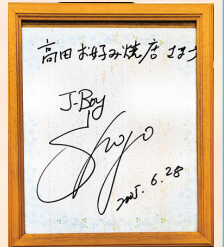 高田お好み焼店
J-Boy
Shogo
2005.6.28